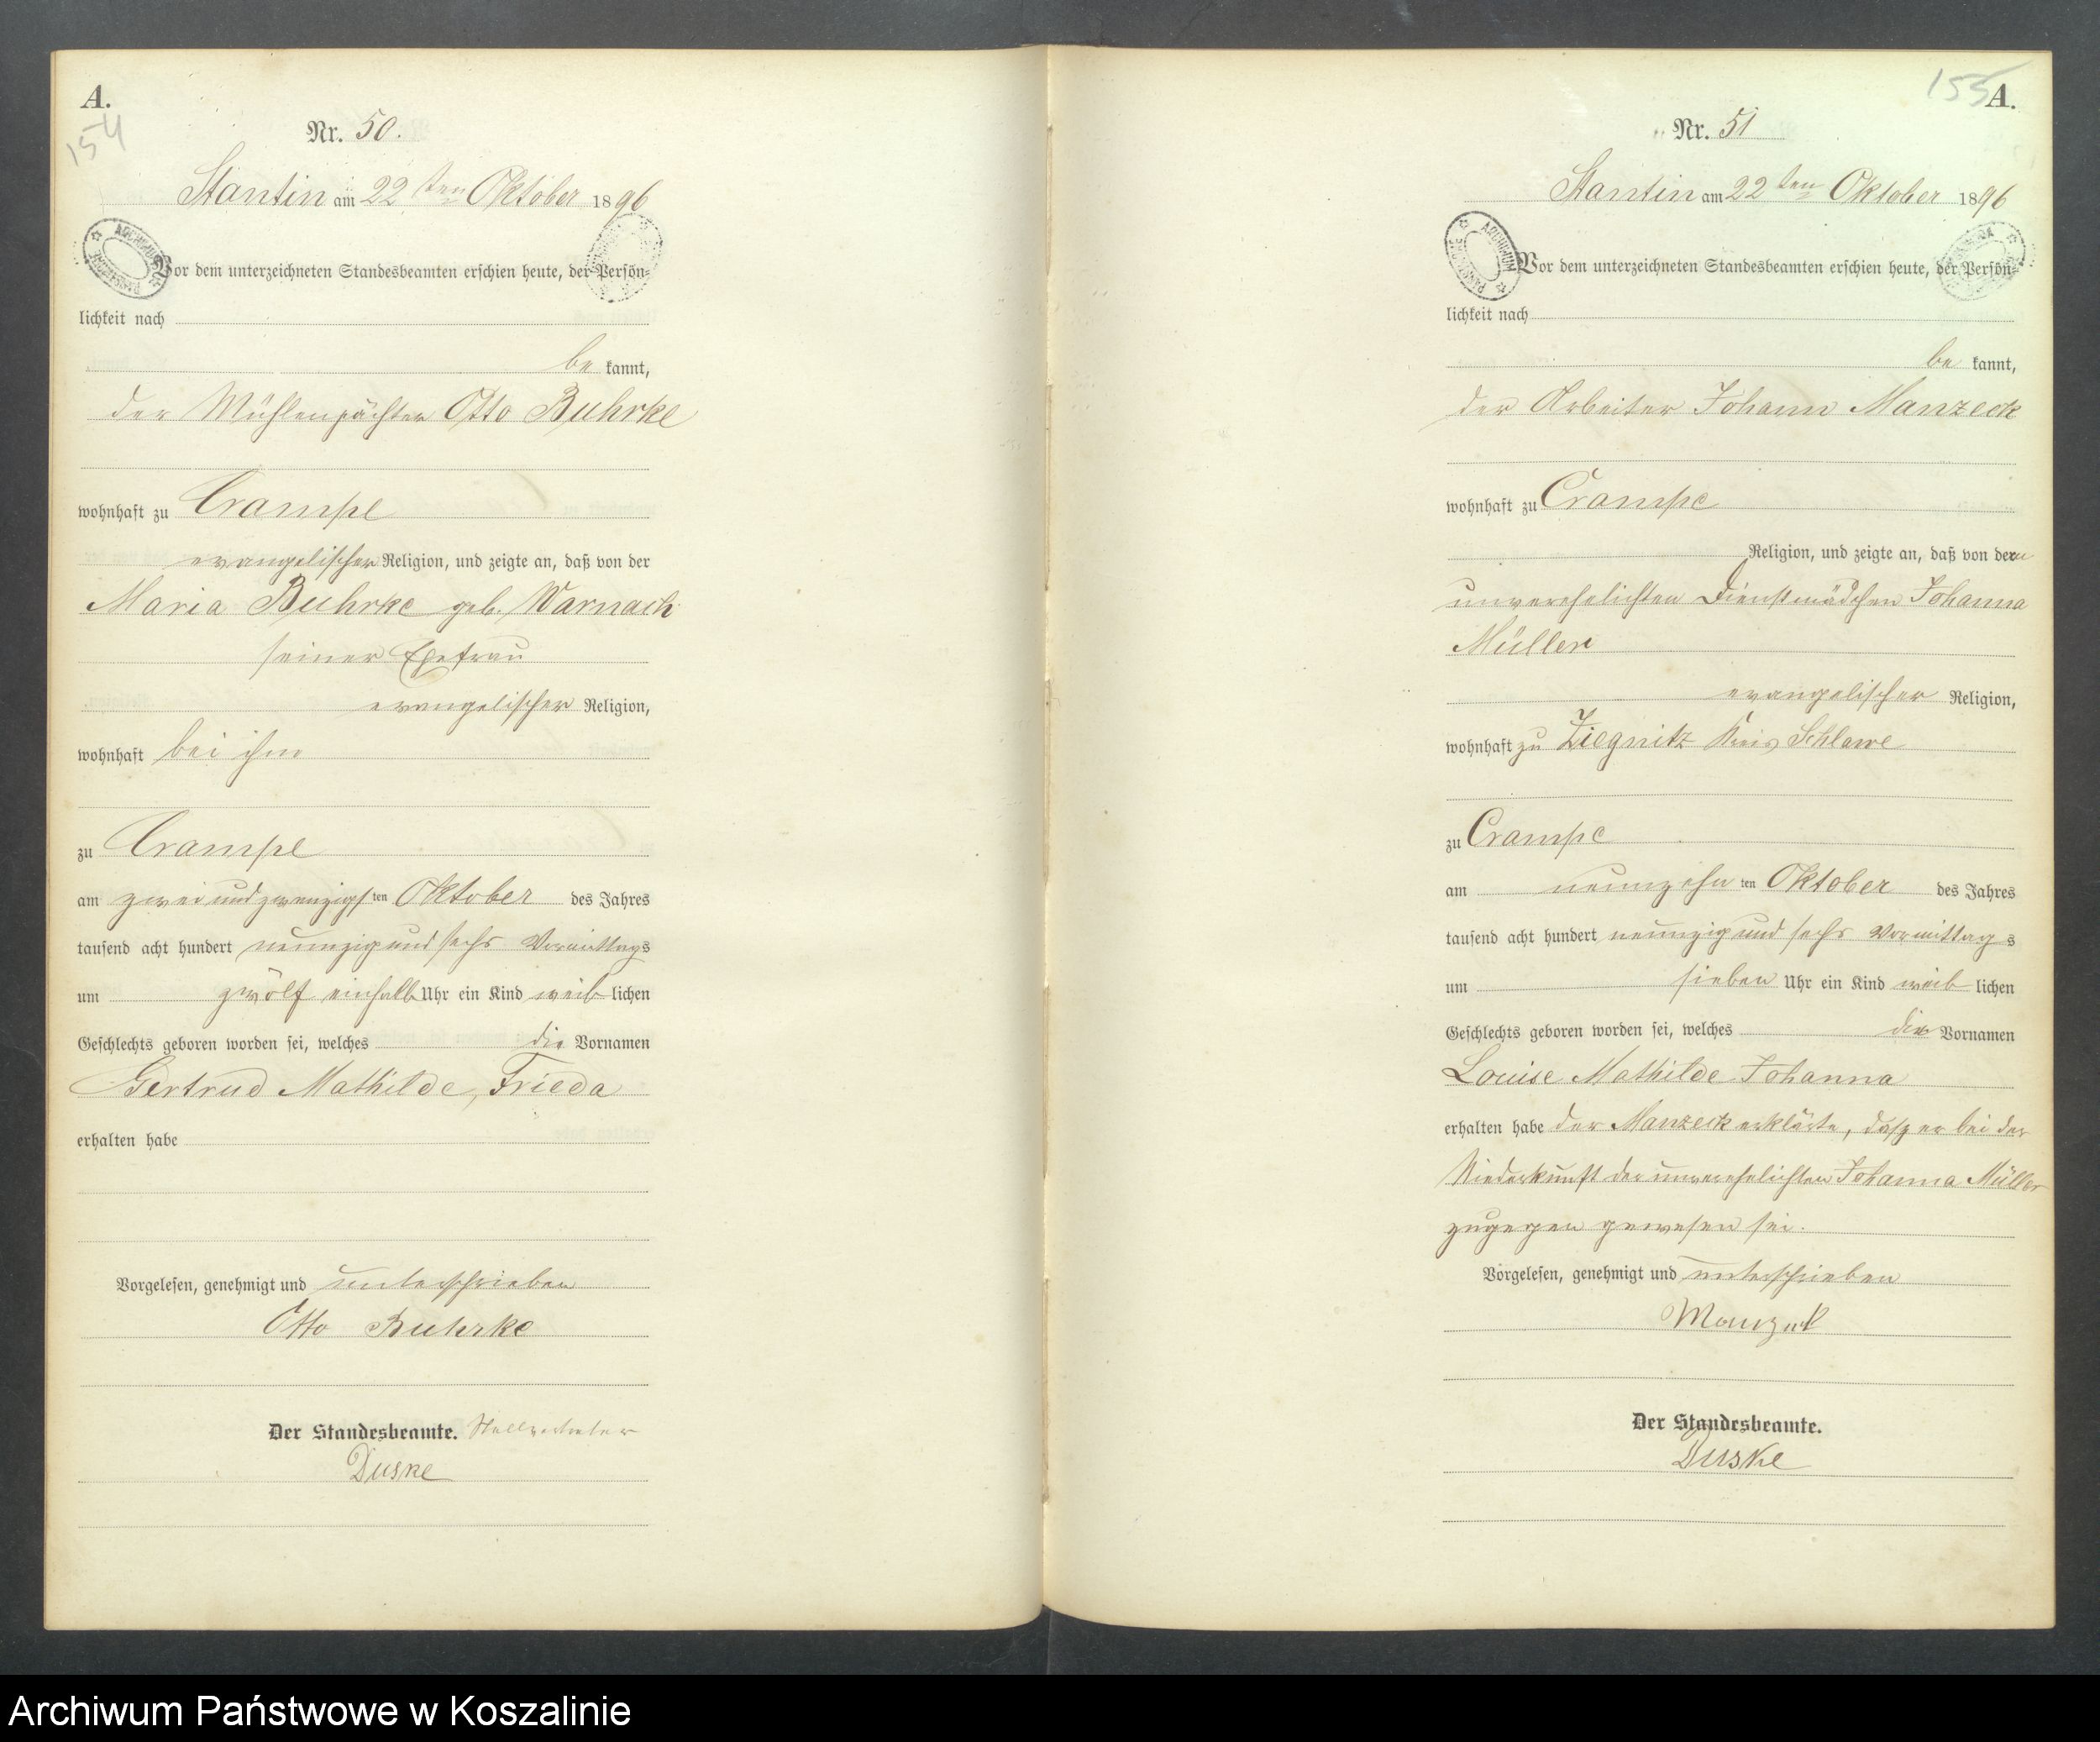 A.
154
Nr. 50.
Stantin am 22ten Oktober 1896
ARCHIWUM PAŃSTWOWE
Vor dem unterzeichneten Standesbeamten erschien heute, der Persön-
lichkeit nach
be kannt,
der Mühlenpächter Otto Buhrke
wohnhaft zu Crampe
evangelischer Religion, und zeigte an, daß von der
Maria Buhrke geb. Warnach
seiner Ehefrau
evangelischer Religion,
wohnhaft bei ihm
zu Crampe
am zwei und zwanzigsten Oktober des Jahres
tausend acht hundert neunzig und sechs Vormittags
um zwölf einhalb Uhr ein Kind weiblichen
Geschlechts geboren worden sei, welches die Vornamen
Gertrud Mathilde, Frieda
erhalten habe
Vorgelesen, genehmigt und unterschrieben
Otto Buhrke
Der Standesbeamte. Stellvertreter
Duske
155 A.
Nr. 51
Stantin am 22ten Oktober 1896
ARCHIWUM PAŃSTWOWE
Vor dem unterzeichneten Standesbeamten erschien heute, der Persön-
lichkeit nach
be kannt,
der Arbeiter Johann Manzeck
wohnhaft zu Crampe
Religion, und zeigte an, daß von der
unverehelichten Dienstmädchen Johanna
Müller
evangelischer Religion,
wohnhaft zu Ziegnitz Kreis Schlawe
zu Crampe
am neunzehnten Oktober des Jahres
tausend acht hundert neunzig und sechs Vormittags
um sieben Uhr ein Kind weiblichen
Geschlechts geboren worden sei, welches die Vornamen
Louise Mathilde Johanna
erhalten habe der Manzeck erklärte, daß er bei der
Niederkunft der unverehelichten Johanna Müller
zugegen gewesen sei.
Vorgelesen, genehmigt und unterschrieben
Manzeck
Der Standesbeamte.
Duske
Archiwum Państwowe w Koszalinie